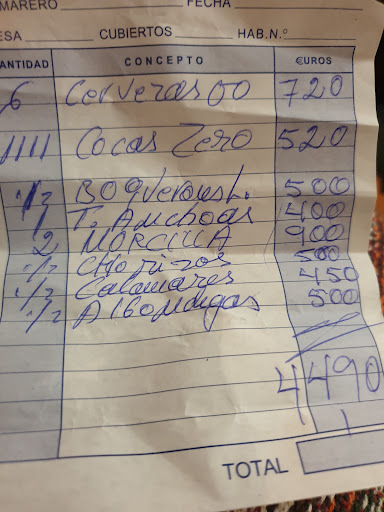 MARERO FECHA
ESA CUBIERTOS HAB.N.º
ANTIDAD CONCEPTO €UROS
6 Cervezas 00 720
1111 Cocas Zero 520
1/2 BOQUERONES L. 500
1 T. Anchoas 400
2 MORCILLA 900
1/2 CHORIZOS 500
1/2 Calamares 450
1/2 Albondigas 500
4490
TOTAL